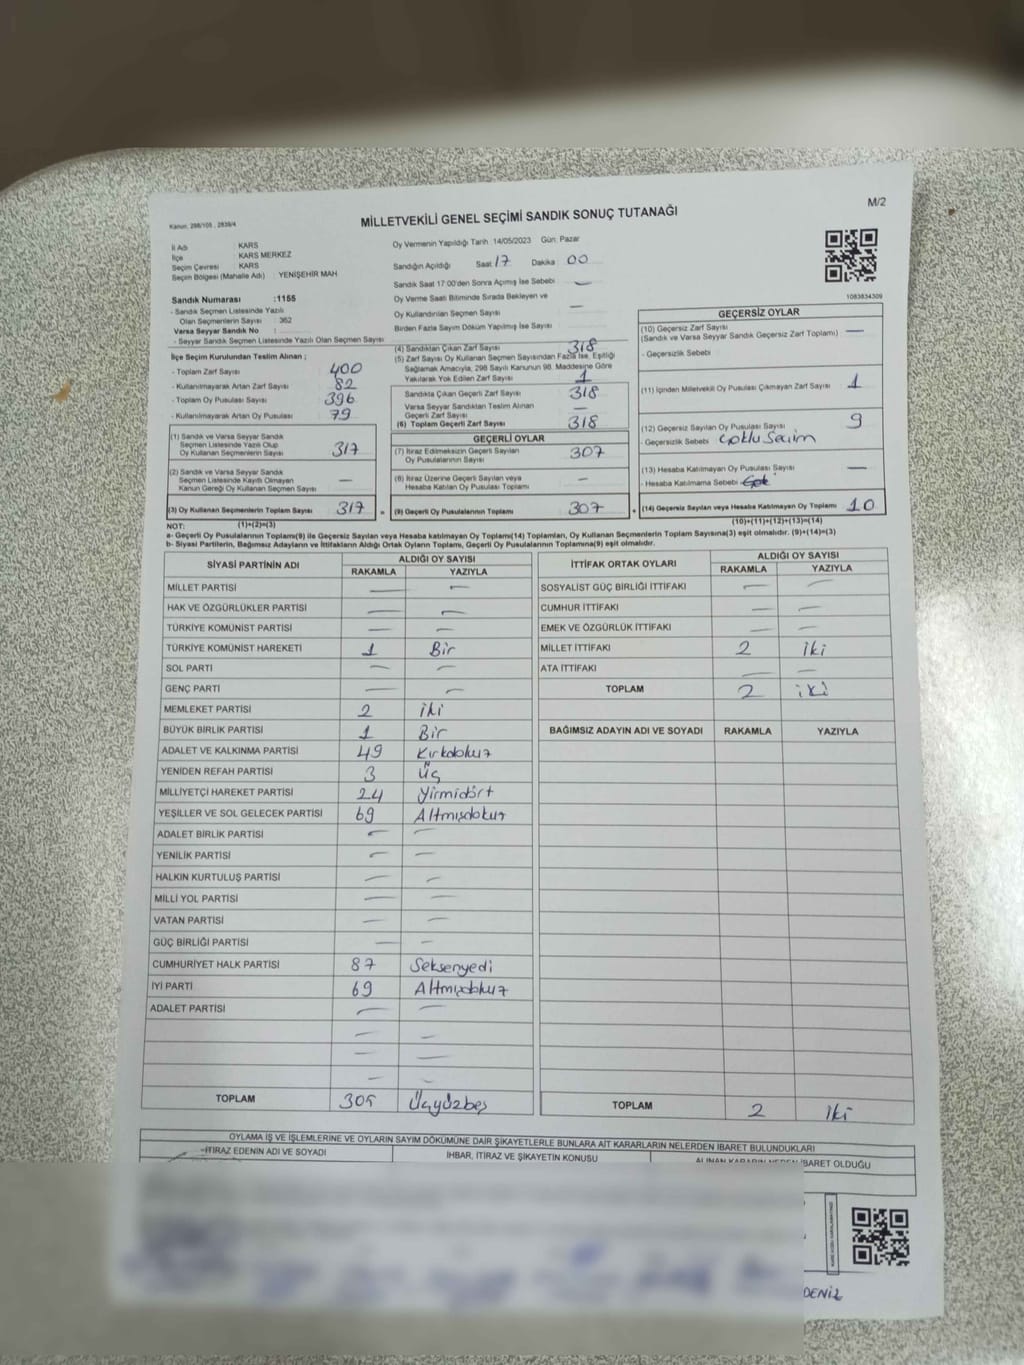 M/2
Kanun: 298/105 , 2839/4
MİLLETVEKİLİ GENEL SEÇİMİ SANDIK SONUÇ TUTANAĞI
İl Adı : KARS
İlçe : KARS MERKEZ
Seçim Çevresi : KARS
Seçim Bölgesi (Mahalle Adı) : YENİŞEHİR MAH
Sandık Numarası :1155
- Sandık Seçmen Listesinde Yazılı
Olan Seçmenlerin Sayısı : 362
Varsa Seyyar Sandık No :
- Seyyar Sandık Seçmen Listesinde Yazılı Olan Seçmen Sayısı
İlçe Seçim Kurulundan Teslim Alınan ;
- Toplam Zarf Sayısı 400
- Kullanılmayarak Artan Zarf Sayısı 82
- Toplam Oy Pusulası Sayısı 396
- Kullanılmayarak Artan Oy Pusulası 79
(1) Sandık ve Varsa Seyyar Sandık
Seçmen Listesinde Yazılı Olup
Oy Kullanan Seçmenlerin Sayısı 317
(2) Sandık ve Varsa Seyyar Sandık
Seçmen Listesinde Kayıtlı Olmayan
Kanun Gereği Oy Kullanan Seçmen Sayısı —
(3) Oy Kullanan Seçmenlerin Toplam Sayısı 317 =
(1)+(2)=(3)
Oy Vermenin Yapıldığı Tarih 14/05/2023 Gün: Pazar
Sandığın Açıldığı Saat 17 Dakika 00
Sandık Saat 17:00'den Sonra Açılmış İse Sebebi —
Oy Verme Saati Bitiminde Sırada Bekleyen ve
Oy Kullandırılan Seçmen Sayısı —
Birden Fazla Sayım Döküm Yapılmış İse Sayısı
(4) Sandıktan Çıkan Zarf Sayısı 318
(5) Zarf Sayısı Oy Kullanan Seçmen Sayısından Fazla İse, Eşitliği
Sağlamak Amacıyla, 298 Sayılı Kanunun 98. Maddesine Göre
Yakılarak Yok Edilen Zarf Sayısı 1
Sandıkta Çıkan Geçerli Zarf Sayısı 318
Varsa Seyyar Sandıktan Teslim Alınan
Geçerli Zarf Sayısı —
(6) Toplam Geçerli Zarf Sayısı 318
GEÇERLİ OYLAR
(7) İtiraz Edilmeksizin Geçerli Sayılan
Oy Pusulalarının Sayısı 307
(8) İtiraz Üzerine Geçerli Sayılan veya
Hesaba Katılan Oy Pusulası Toplamı —
(9) Geçerli Oy Pusulalarının Toplamı 307 +
1083834309
GEÇERSİZ OYLAR
(10) Geçersiz Zarf Sayısı —
(Sandık ve Varsa Seyyar Sandık Geçersiz Zarf Toplamı)
- Geçersizlik Sebebi
(11) İçinden Milletvekili Oy Pusulası Çıkmayan Zarf Sayısı 1
(12) Geçersiz Sayılan Oy Pusulası Sayısı 9
- Geçersizlik Sebebi Çoklu Seçim
(13) Hesaba Katılmayan Oy Pusulası Sayısı —
- Hesaba Katılmama Sebebi
(14) Geçersiz Sayılan veya Hesaba Katılmayan Oy Toplamı 10
(10)+(11)+(12)+(13)=(14)
NOT:
a- Geçerli Oy Pusulalarının Toplamı(9) ile Geçersiz Sayılan veya Hesaba katılmayan Oy Toplamı(14) Toplamları, Oy Kullanan Seçmenlerin Toplam Sayısına(3) eşit olmalıdır. (9)+(14)=(3)
b- Siyasi Partilerin, Bağımsız Adayların ve İttifakların Aldığı Ortak Oyların Toplamı, Geçerli Oy Pusulalarının Toplamına(9) eşit olmalıdır.
SİYASİ PARTİNİN ADI ALDIĞI OY SAYISI
RAKAMLA YAZIYLA
MİLLET PARTİSİ — —
HAK VE ÖZGÜRLÜKLER PARTİSİ — —
TÜRKİYE KOMÜNİST PARTİSİ — —
TÜRKİYE KOMÜNİST HAREKETİ 1 Bir
SOL PARTİ — —
GENÇ PARTİ — —
MEMLEKET PARTİSİ 2 iki
BÜYÜK BİRLİK PARTİSİ 1 Bir
ADALET VE KALKINMA PARTİSİ 49 Kırkdokuz
YENİDEN REFAH PARTİSİ 3 Üç
MİLLİYETÇİ HAREKET PARTİSİ 24 Yirmidört
YEŞİLLER VE SOL GELECEK PARTİSİ 69 Altmışdokuz
ADALET BİRLİK PARTİSİ — —
YENİLİK PARTİSİ — —
HALKIN KURTULUŞ PARTİSİ — —
MİLLİ YOL PARTİSİ — —
VATAN PARTİSİ — —
GÜÇ BİRLİĞİ PARTİSİ — —
CUMHURİYET HALK PARTİSİ 87 Seksenyedi
İYİ PARTİ 69 Altmışdokuz
ADALET PARTİSİ — —
— —
— —
— —
TOPLAM 305 Üçyüzbeş
İTTİFAK ORTAK OYLARI ALDIĞI OY SAYISI
RAKAMLA YAZIYLA
SOSYALİST GÜÇ BİRLİĞİ İTTİFAKI — —
CUMHUR İTTİFAKI — —
EMEK VE ÖZGÜRLÜK İTTİFAKI — —
MİLLET İTTİFAKI 2 iki
ATA İTTİFAKI — —
TOPLAM 2 iki
BAĞIMSIZ ADAYIN ADI VE SOYADI RAKAMLA YAZIYLA
TOPLAM 2 iki
OYLAMA İŞ VE İŞLEMLERİNE VE OYLARIN SAYIM DÖKÜMÜNE DAİR ŞİKAYETLERLE BUNLARA AİT KARARLARIN NELERDEN İBARET BULUNDUKLARI
İTİRAZ EDENİN ADI VE SOYADI İHBAR, İTİRAZ VE ŞİKAYETİN KONUSU ALINAN KARARIN NEDEN İBARET OLDUĞU
DENİZ